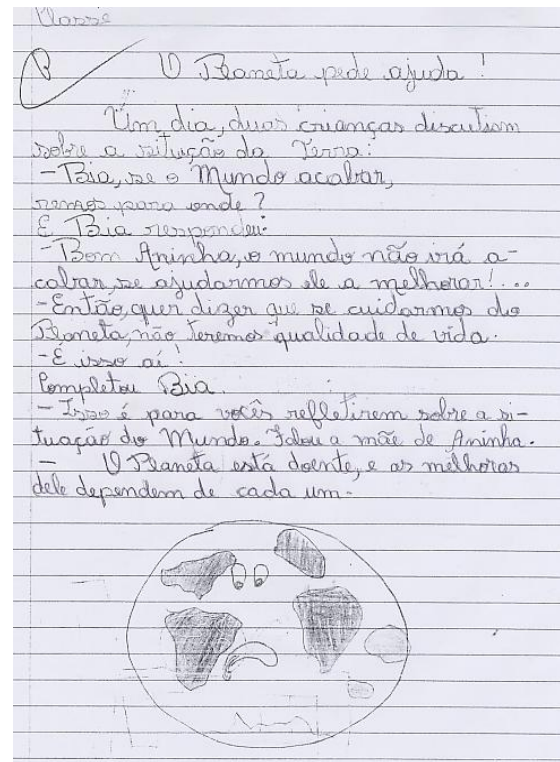 Classe
O Planeta pede ajuda!
Um dia, duas crianças discutiam
sobre a situção da Terra:
- Bia, se o Mundo acabar,
remos para onde?
E Bia respondeu:
- Bom Aninha, o mundo não irá a-
cabar, se ajudarmos ele a melhorar!...
- Então, quer dizer que se cuidarmos do
Planeta, não teremos qualidade de vida.
- É isso aí!
Completou Bia.
- Isso é para vocês refletirem sobre a si-
tuação do Mundo. Falou a mãe de Aninha.
- O Planeta está doente, e as melhoras
dele dependem de cada um.